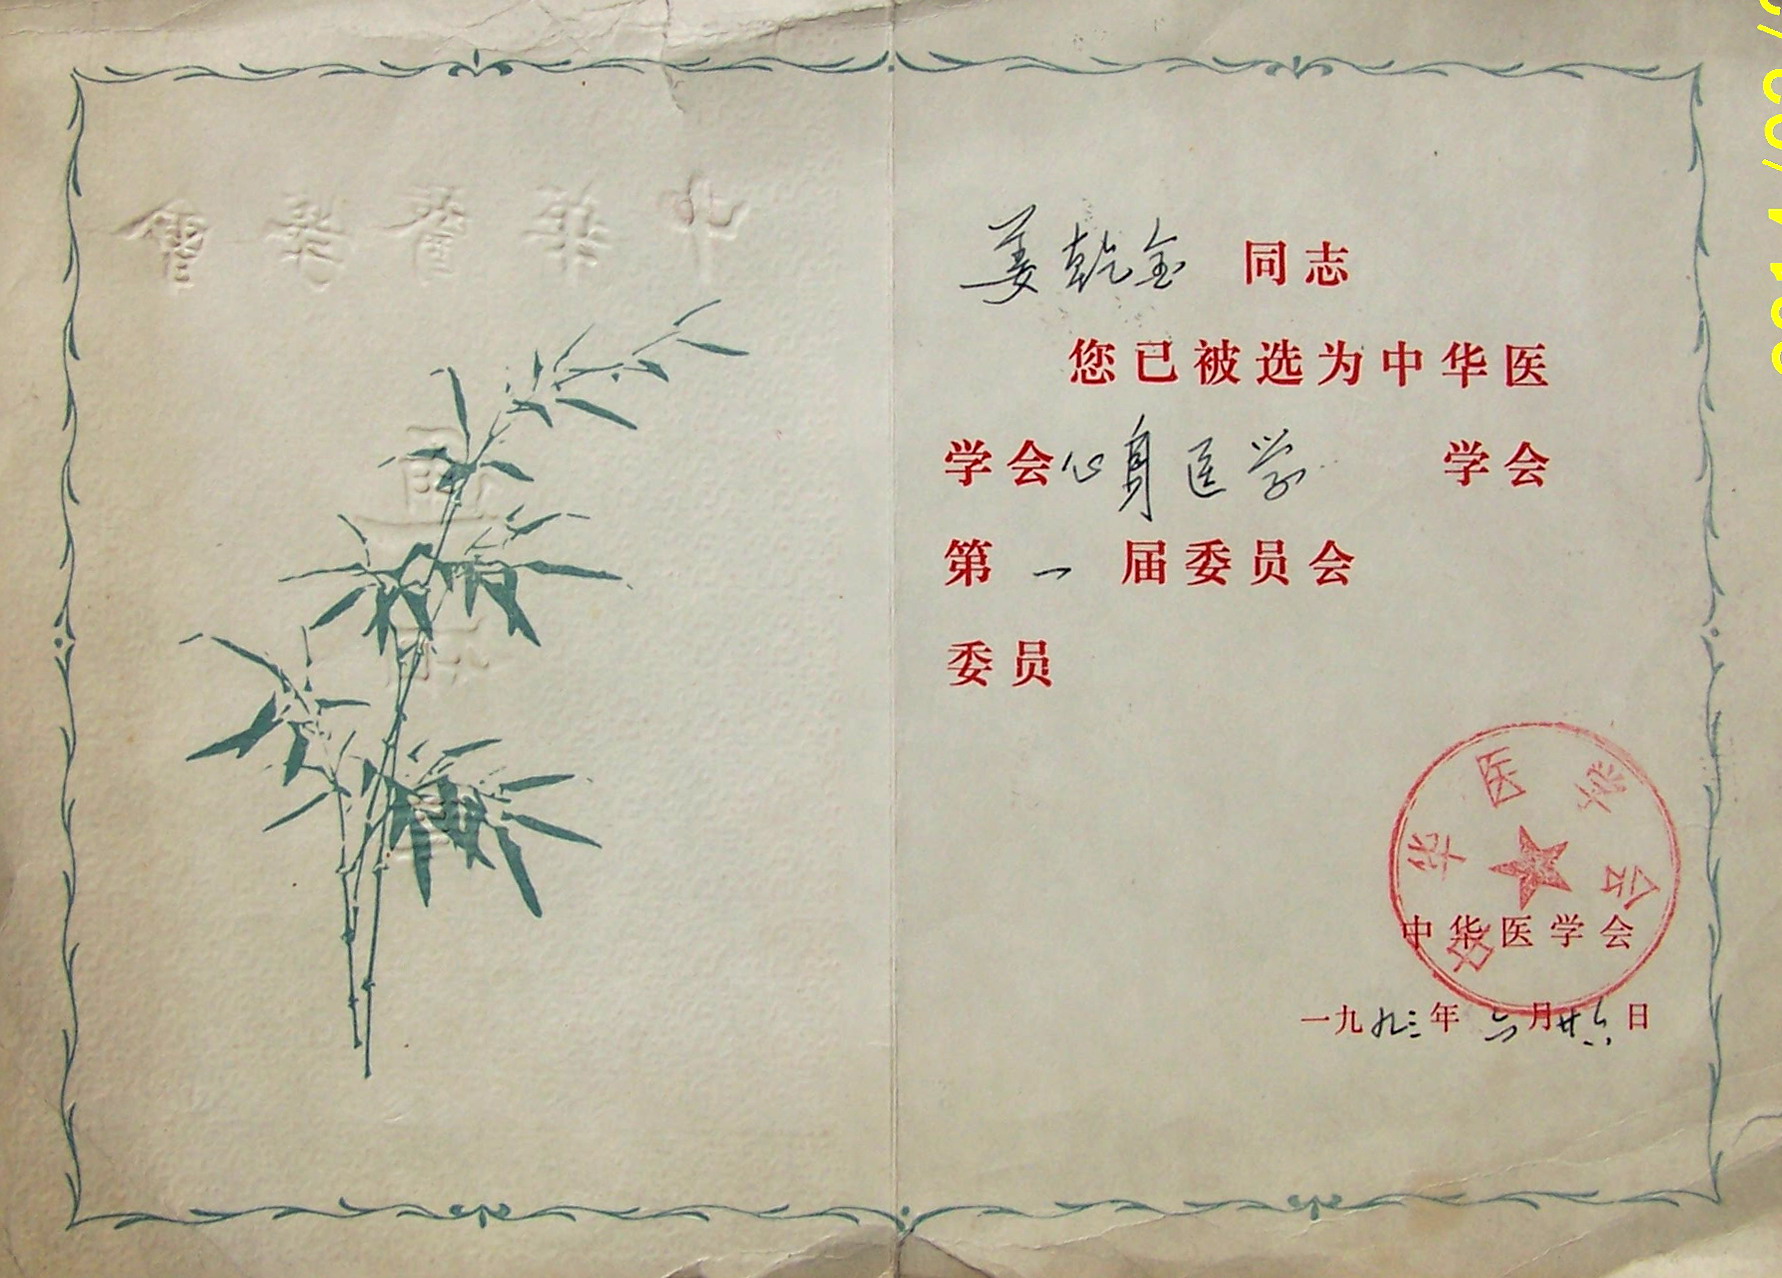 中華醫學會
姜乾金 同志
您已被选为中华医
学会心身医学 学会
第 一 届委员会
委员
中华医学会
中华医学会
一九九三年 六 月廿六日